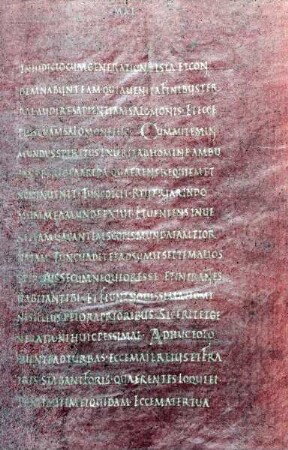 MAT
IN IUDICIO CUM GENERATIONE ISTA ET CON
DEMNABUNT EAM QUIA UENIT A FINIBUS TER
RAE AUDIRE SAPIENTIAM SALOMONIS ET ECCE
PLUS QUAM SALOMON HIC CUM AUTEM IN
MUNDUS SPIRITUS AB HOMINE AMBU
LAT PER LOCA ARIDA QUAERENS REQUIEM ET
NON INUENIT TUNC DICIT REUERTAR IN DO
MUM MEAM UNDE EXIUI ET UENIENS INUE
NIT EAM UACANTEM SCOPIS MUNDATAM ET OR
NATAM TUNC UADIT ET ADSUMIT SEPTEM ALIOS
SPIRITUS SECUM NEQUIORES SE ET INTRANTES
HABITANT IBI ET FIUNT NOUISSIMA HOMI
NIS ILLIUS PEIORA PRIORIBUS SIC ERIT ET GE
NERATIONI HUIC PESSIMAE ADHUC EO LO
QUENTE AD TURBAS ECCE MATER EIUS ET FRA
TRES STABANT FORIS QUAERENTES LOQUI EI
DIXIT EI QUIDAM ECCE MATER TUA